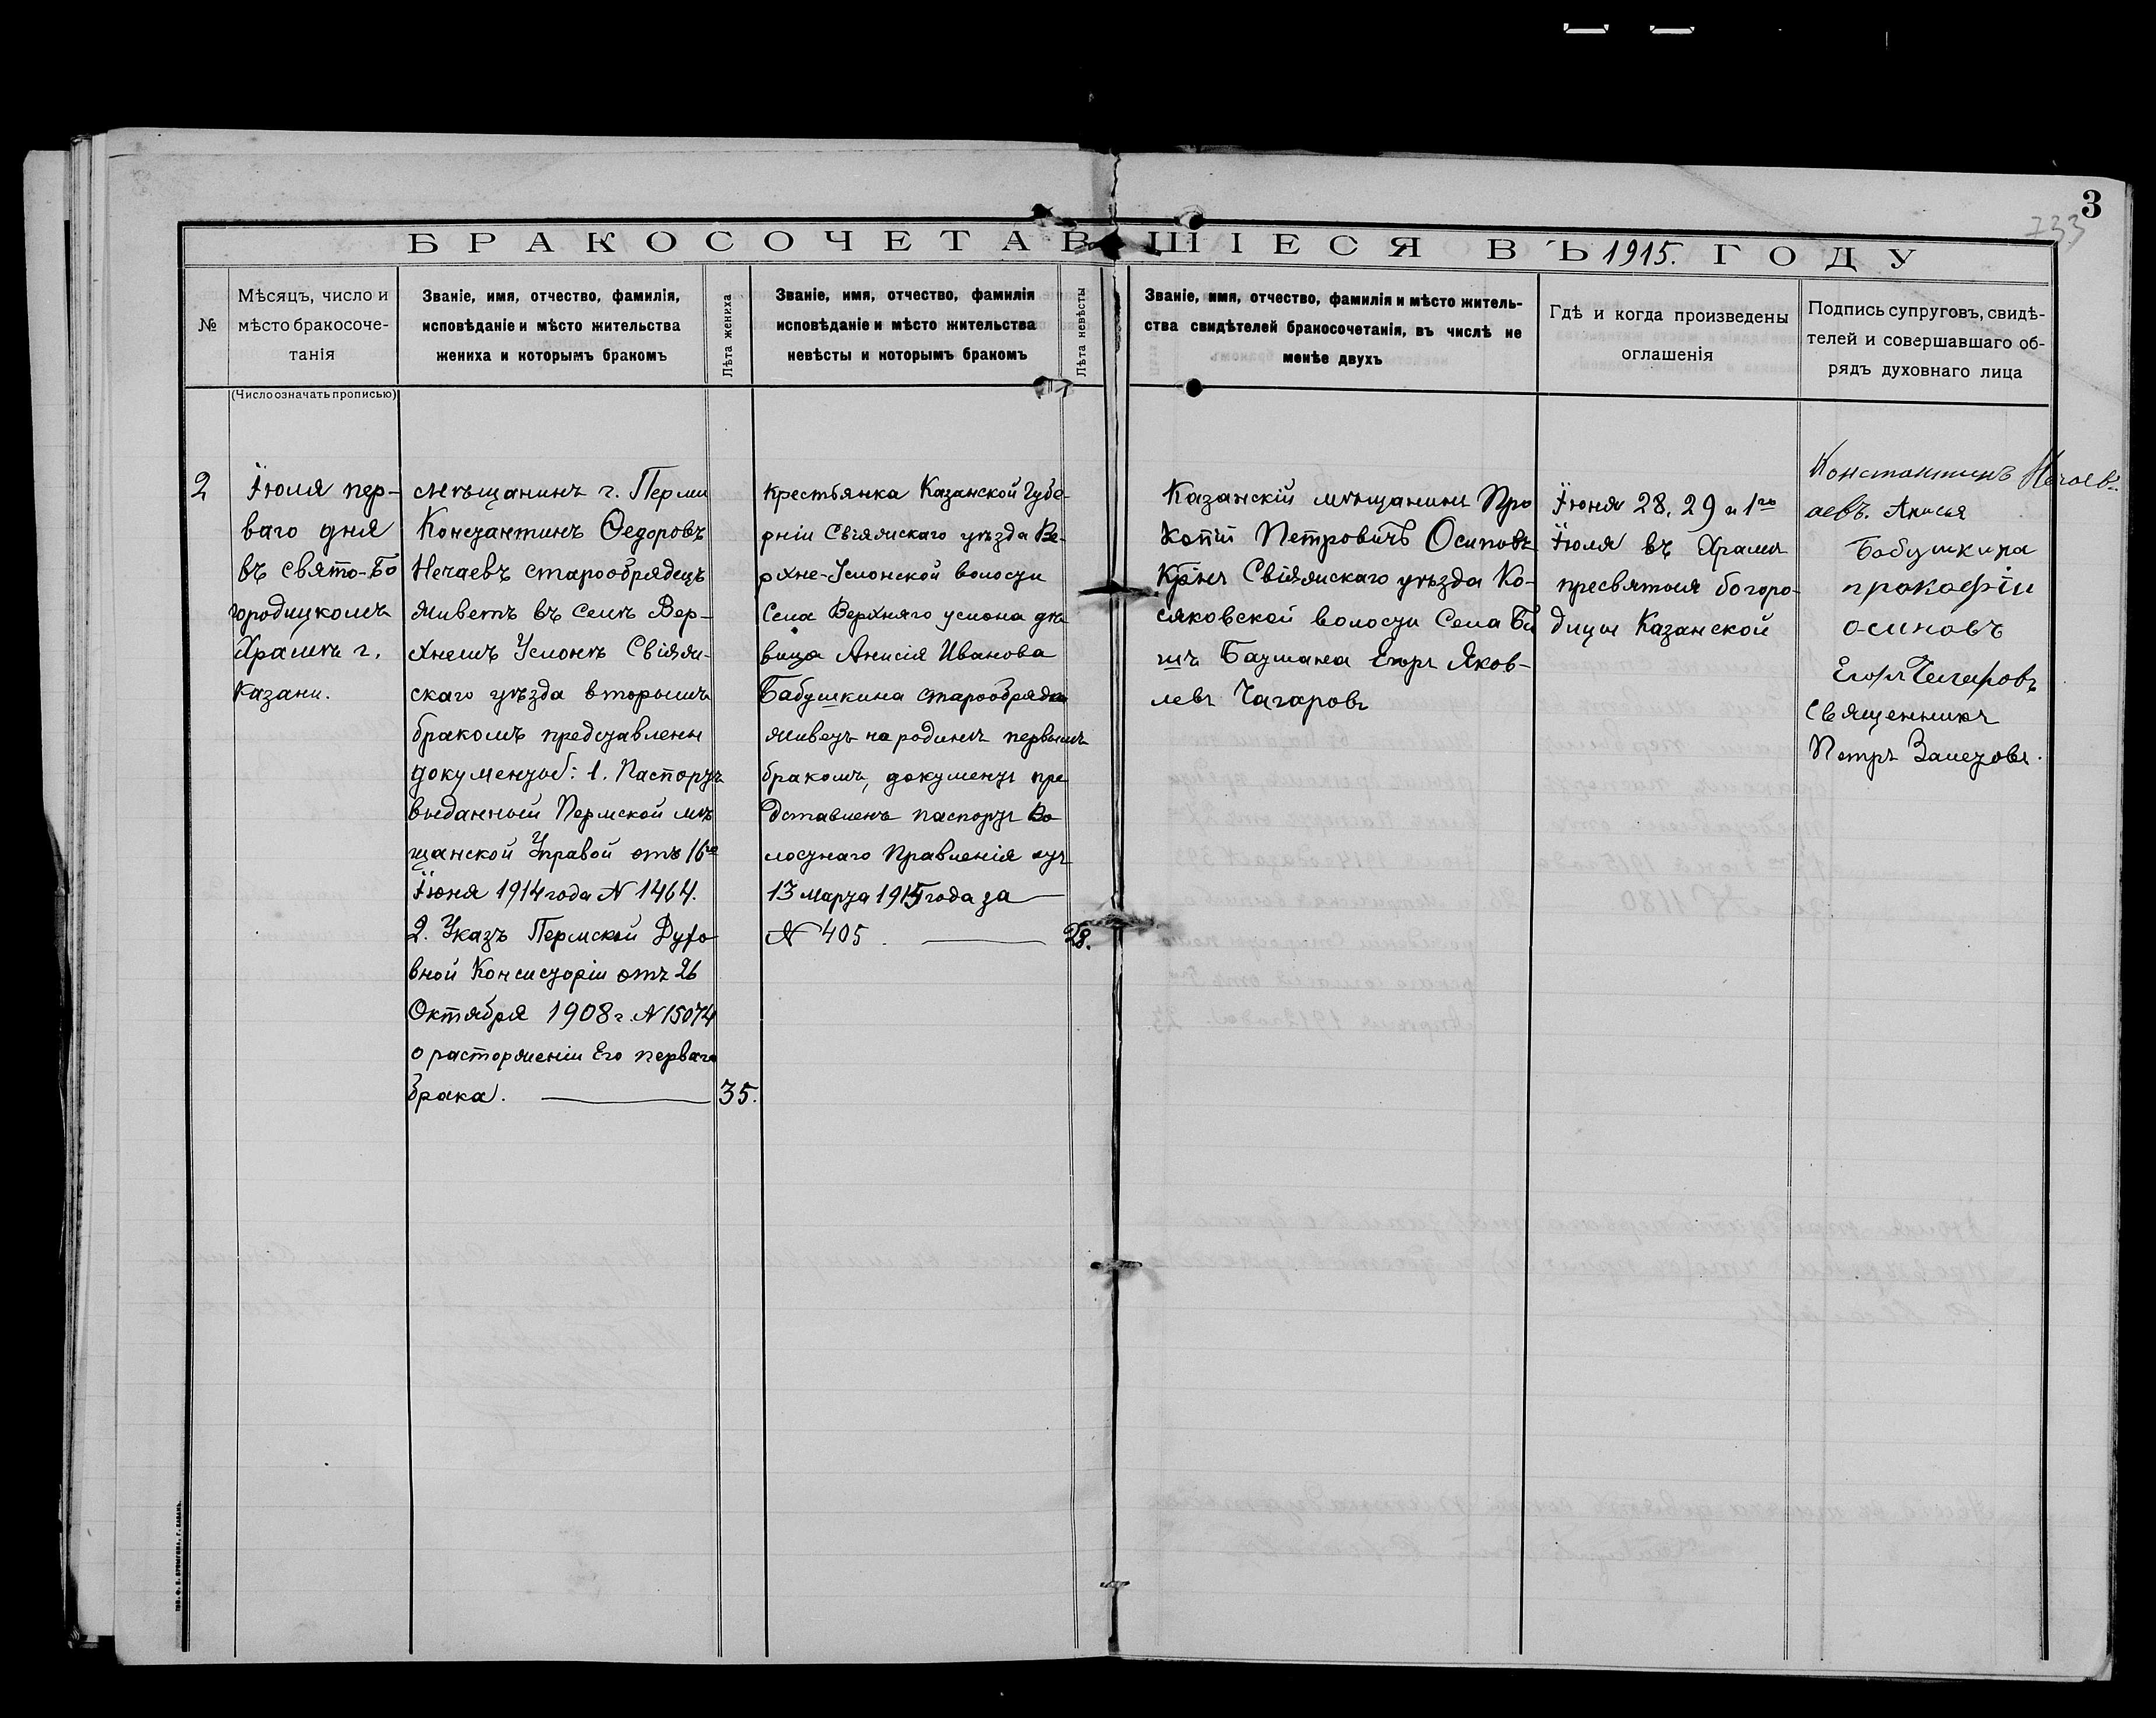 3
733
БРАКОСОЧЕТАВШІЕСЯ ВЪ 1915. ГОДУ
№
Мѣсяцъ, число и
мѣсто бракосоче-
танія
(Число означать прописью)
Званіе, имя, отчество, фамилія,
исповѣданіе и мѣсто жительства
жениха и которымъ бракомъ
Лѣта жениха
Званіе, имя, отчество, фамилія
исповѣданіе и мѣсто жительства
невѣсты и которымъ бракомъ
Лѣта невѣсты
Званіе, имя, отчество, фамилія и мѣсто житель-
ства свидѣтелей бракосочетанія, въ числѣ не
менѣе двухъ
Гдѣ и когда произведены
оглашенія
Подпись супруговъ, свидѣ-
телей и совершавшаго об-
рядъ духовнаго лица
2
Іюля пер-
ваго дня
въ свято-Бо
городицкомъ
Храмѣ г.
Казани.
мѣщанинъ г. Перми
Константинъ Ѳедоровъ
Нечаевъ старообрядецъ
живетъ въ селѣ Вер-
хнемъ Услонѣ Свіяж-
скаго уѣзда вторымъ
бракомъ представлены
документы: 1. Паспортъ
выданный Пермской мѣ
щанской Управой отъ 16го
Іюня 1914 года № 1464.
2. Указъ Пермской Духо
вной Консисторіи отъ 26
Октября 1908 г. № 15074
о расторженіи Его перваго
брака.
35.
крестьянка Казанской Губе-
рніи Свіяжскаго уѣзда Ве-
рхне-Услонской волости
Села Верхняго услона дѣ
вица Анисія Иванова
Бабушкина старообрядка
живетъ на родинѣ первымъ
бракомъ, документъ пре
дставленъ паспортъ Во
лостнаго Правленія отъ
13 марта 1915 года за
№ 405.
28.
Казанскій мѣщанинъ Про
копій Петровичъ Осиповъ
Кр-нъ Свіяжскаго уѣзда Ко-
сяковской волости Села Би
шъ Баумана Егоръ Яков-
левъ Чагаровъ
Іюня 28, 29 и 1го
Іюля въ Храмѣ
пресвятыя богоро-
дицы Казанской
Константинъ Нечаевъ
аевъ. Анисья
Бабушкина
прокофіи
осиповъ
Егоръ Чагаровъ
Священникъ
Петръ Залетовъ.
ТИП. Ф. П. ОРЛЫГЕНА, Г. КАЗАНЬ.